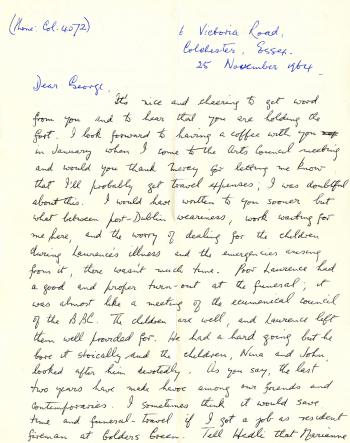 (Phone: Col. 4072)
6 Victoria Road,
Colchester, Essex.
25 November 1964
Dear George,
It's nice and cheering to get word
from you and to hear that you are holding the
fort. I look forward to having a coffee with you
in January when I come to the Arts Council meeting
and would you thank Mercy for letting me know
that I'll probably get travel expenses; I was doubtful
about this. I would have written to you sooner but
what between post-Dublin weariness, work waiting for
me here, and the worry of dealing for the children
during Laurence's illness and the emergencies arising
from it, there wasn't much time. Poor Laurence had
a good and proper turn-out at the funeral; it
was almost like a meeting of the ecumenical council
of the BBC. The children are well, and Laurence left
them well provided for. He had a hard going but he
bore it stoically and the children, Nina and John,
looked after him devotedly. As you say, the last
two years have made havoc among our friends and
contemporaries. I sometimes think it would save
time and funeral-travel if I got a job as resident
fireman at Golders Green. Tell Hedli that Marianne